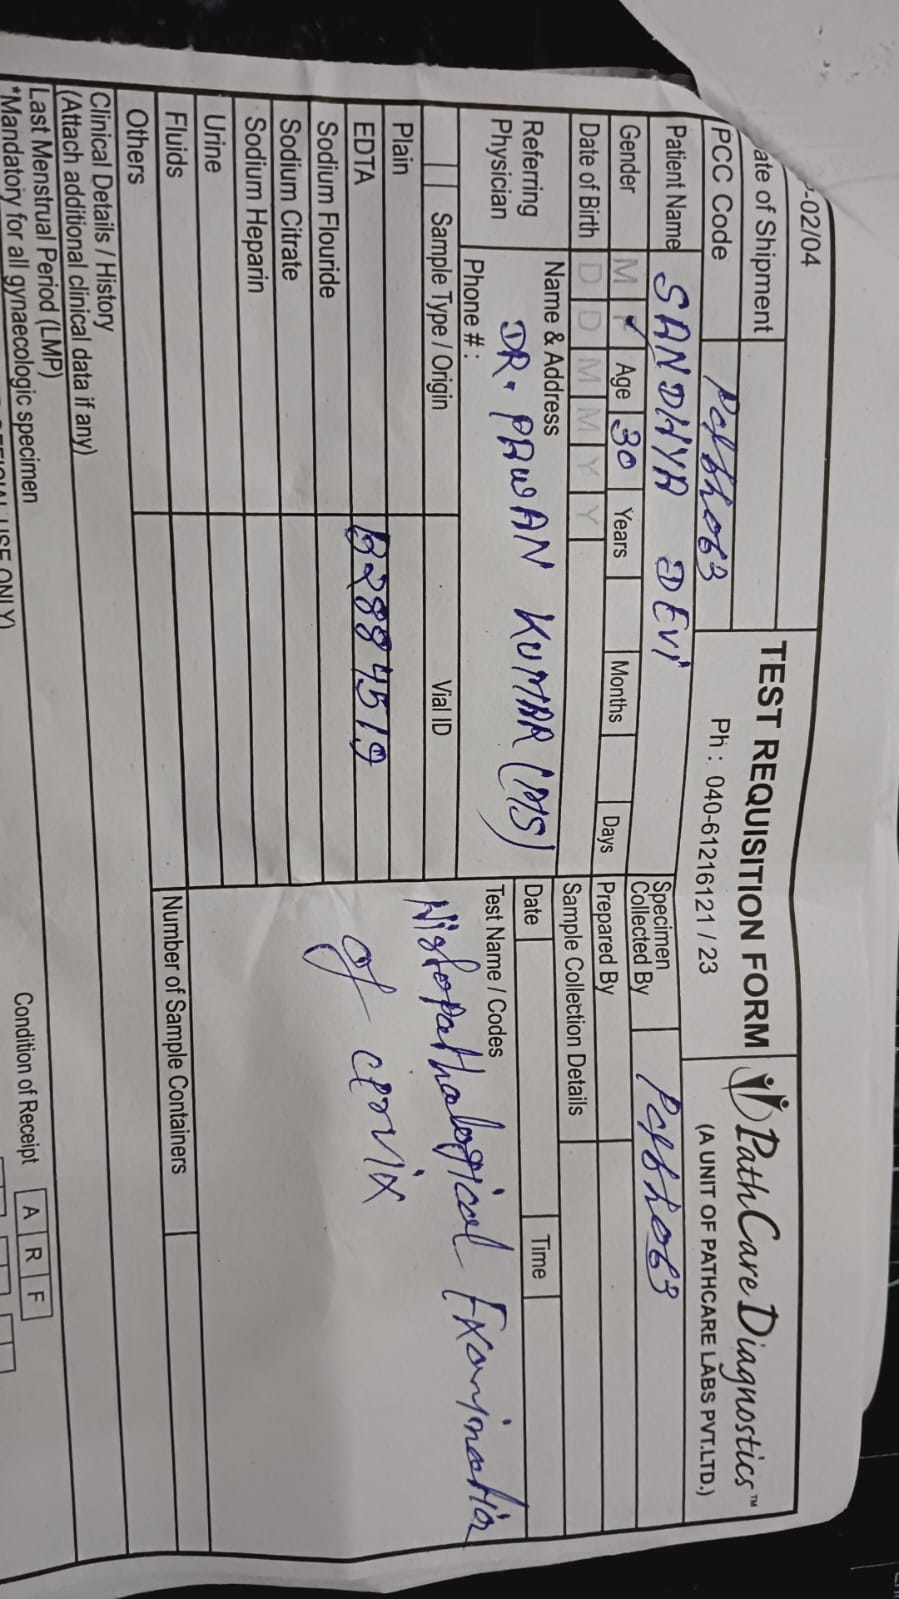 -02/04
ate of Shipment
TEST REQUISITION FORM
PathCare Diagnostics™
PCC Code
Ph : 040-61216121 / 23
(A UNIT OF PATHCARE LABS PVT.LTD.)
Patient Name SANDHYA DEVI
Specimen
Collected By
Gender M F ✓ Age 30 Years Months Days
Prepared By
Date of Birth D D M M Y Y
Sample Collection Details
Referring
Physician
Name & Address
DR. PAWAN KUMAR (MS)
Phone # :
Date Time
Test Name / Codes
Histopathological Examination
of cervix
Sample Type / Origin Vial ID
Plain
EDTA B2884519
Sodium Flouride
Sodium Citrate
Sodium Heparin
Urine
Fluids
Number of Sample Containers
Others
Clinical Details / History
(Attach additional clinical data if any)
Last Menstrual Period (LMP)
*Mandatory for all gynaecologic specimen
Condition of Receipt A R F
USE ONLY)